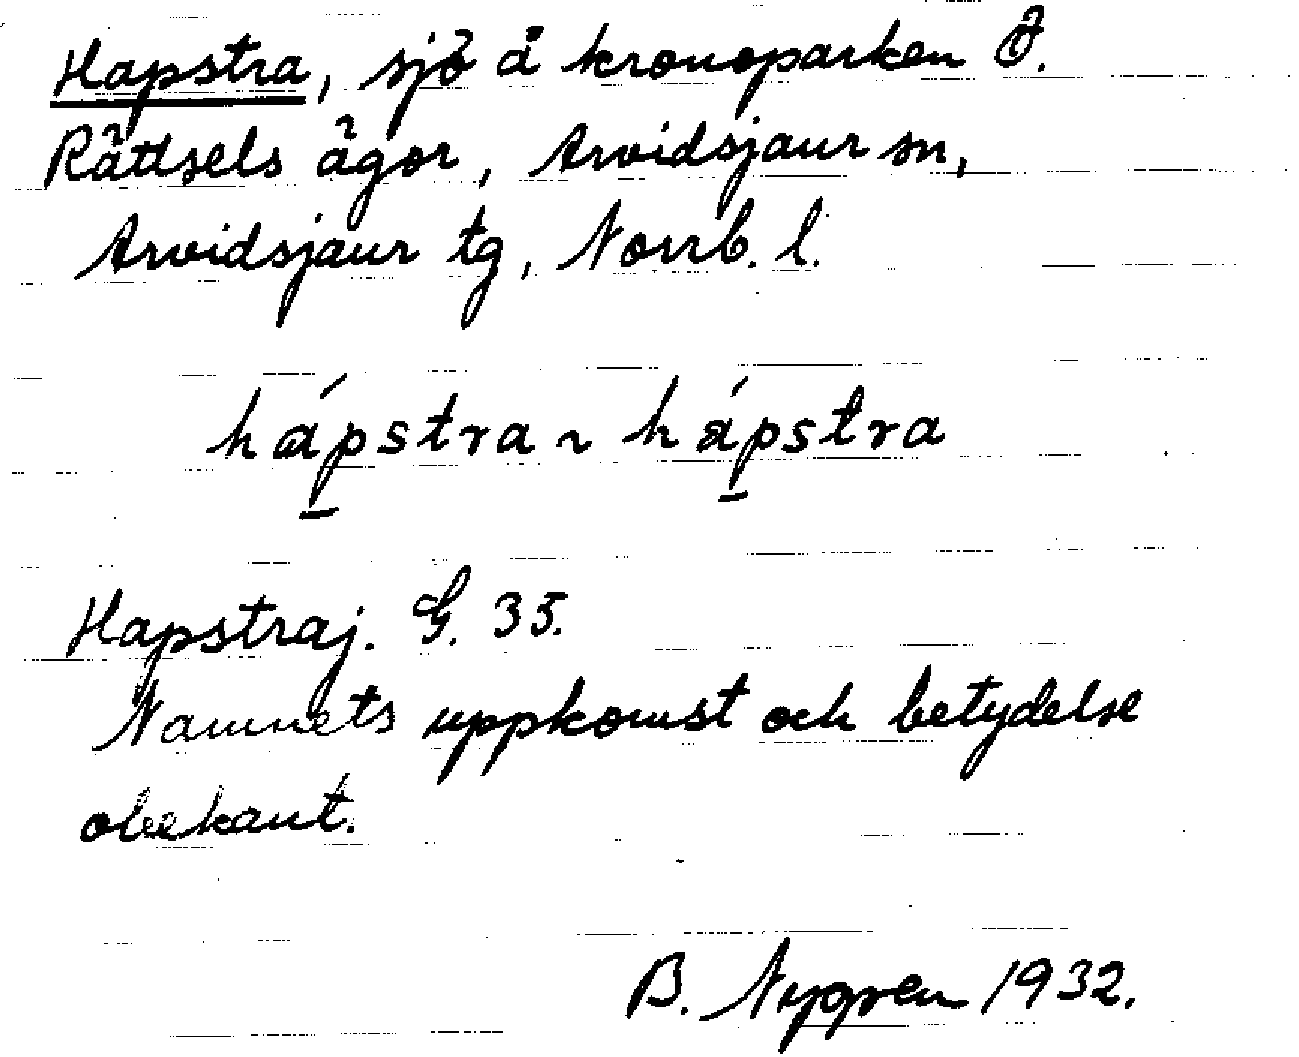 Hapstra, sjö å kronoparken Ö.
Rättsels ägor, Arvidsjaur sn,
Arvidsjaur tg, Norrb. l.
hápstra ~ hápstra
Hapstraj. G. 35.
Namnets uppkomst och betydelse
obekant.
B. Nygren 1932.